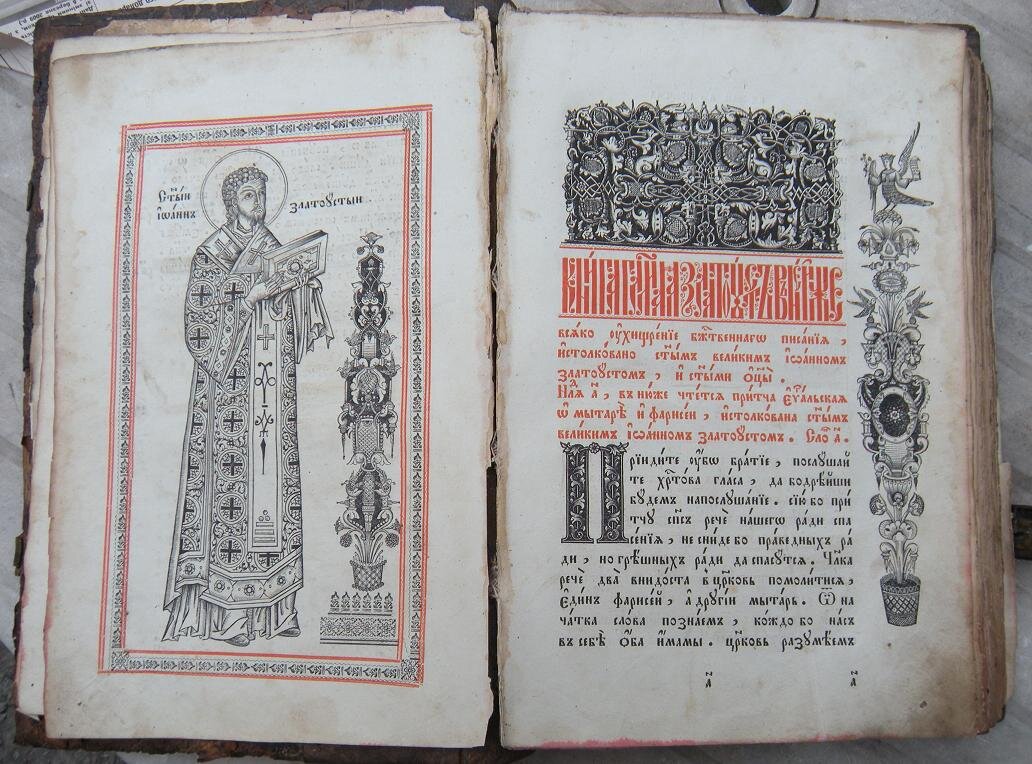 ст҃ы́й
і҆ѡа́ннъ
златоꙋ́стый
кни́га гл҃емаѧ златоꙋ́стъ в не́й же
всѧ́ко ᲂу҆хищре́нїе бж҃е́ственнагѡ писа́нїѧ ,
и҆столкова́но ст҃ы́мъ вели́кимъ і҆ѡа́нномъ
златоꙋ́стомъ , и҆ ст҃ы́ми ѻ҆ц҃ы̀ .
Нлⷣѧ а҃ , въ ню́же чте́тсѧ при́тча є҆ѵⷢ҇льскаѧ
ѡ҆ мытарѣ̀ и҆ фарисе́и , и҆столко́вана ст҃ы́мъ
вели́кимъ і҆ѡа́нномъ златоꙋ́стомъ . Сло́в а҃ .
Прїиди́те ᲂу҆́бѡ бра́тїе , послꙋ́шай
те хрⷭ҇то́ва гла́са , да бодрѣ́йши
бꙋ́демъ напослꙋша́нїе . сїю́ бо при́
тчꙋ сп҃съ речѐ на́шегѡ ра́ди спа
се́нїѧ , не сни́де бо пра́ведныхъ ра
ди , но грѣ́шныхъ ра́ди да спасꙋ́тсѧ . Чл҃ка
речѐ два̀ внидо́ста в цр҃ковь помоли́тисѧ ,
є҆ди́нъ фарисе́й , а҆ дрꙋгі́й мыта́рь . Ѿ на
ча́тка сло́ва позна́емъ , ко́ждо бо на́съ
въ себѣ̀ ѻ҆́ба и҆́мамы . цр҃ковь разꙋмѣ́емъ
а҃ а҃